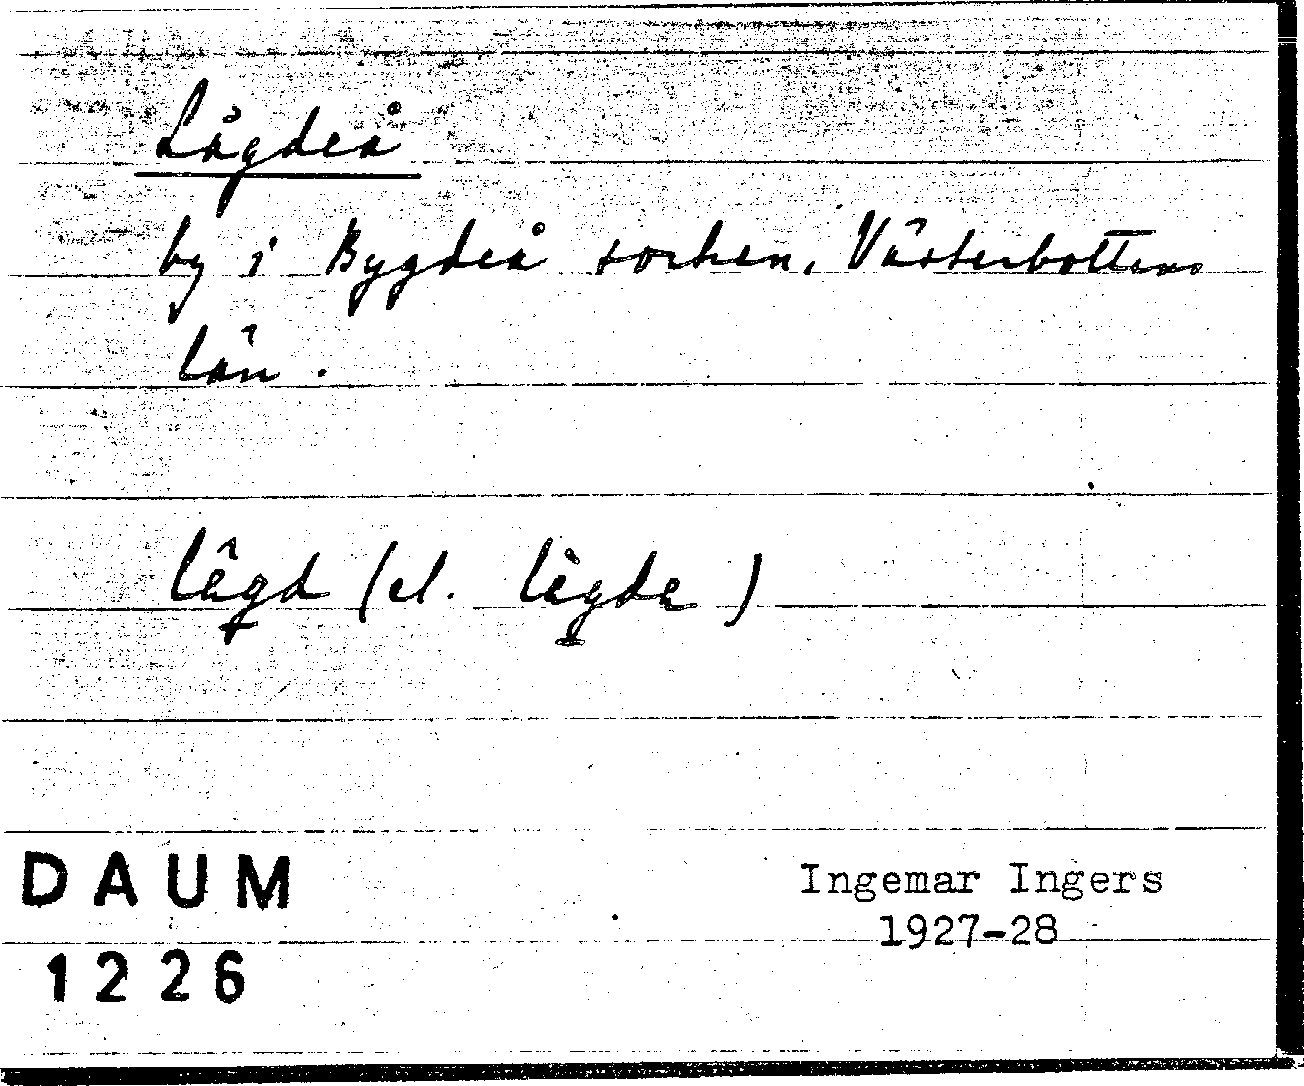 Lågdeå
by i Bygdeå socken, Västerbottens
län.
lâgd (el. làgda)
DAUM
1226
Ingemar Ingers
1927-28